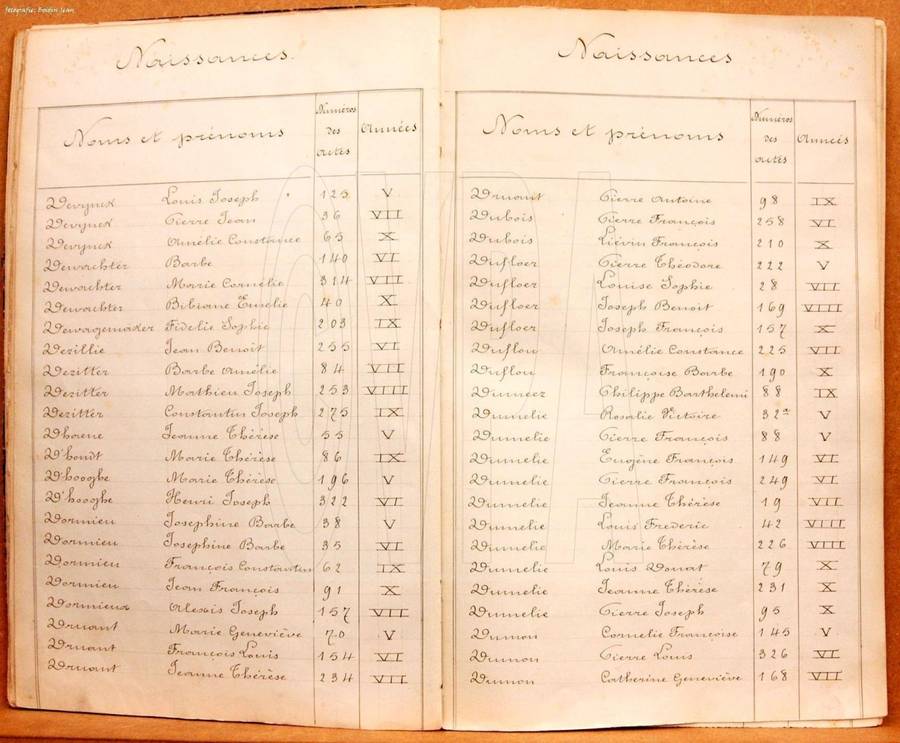 fotografie: Boidin Jean
Naissances.
Noms et prénoms Numéros des actes Années
Devynck Louis Joseph 125 V
Devynck Pierre Jean 36 VII
Devynck Amélie Constance 65 X
Dewachter Barbe 140 VI
Dewachter Marie Cornélie 314 VIII
Dewachter Bibiane Emélie 40 X
Dewagemaker Fidélie Sophie 203 IX
Dezillie Jean Benoit 255 VI
Dezitter Barbe Amélie 84 VII
Dezitter Mathieu Joseph 253 VIII
Dezitter Constantin Joseph 275 IX
Dhaene Jeanne Thérèse 55 V
D'hondt Marie Thérèse 86 IX
D'hooghe Marie Thérèse 196 V
D'hooghe Henri Joseph 322 VI
Dormieu Josephine Barbe 38 V
Dormieu Josephine Barbe 35 VI
Dormieu François Constantin 62 IX
Dormieu Jean François 91 X
Dormieux Alexis Joseph 157 VII
Druant Marie Geneviève 70 V
Druant François Louis 154 VI
Druant Jeanne Thérèse 234 VII
Naissances
Noms et prénoms Numéros des actes Années
Druant Pierre Antoine 98 IX
Dubois Pierre François 258 VI
Dubois Liévin François 210 X
Dufloer Pierre Théodore 222 V
Dufloer Louise Sophie 28 VII
Dufloer Joseph Benoit 169 VIII
Dufloer Joseph François 157 X
Duflou Amélie Constance 225 VII
Duflou Françoise Barbe 190 X
Dumeez Philippe Barthelemi 88 IX
Dumelie Rosalie Victoire 32 V
Dumelie Pierre François 88 V
Dumelie Eugène François 149 VI
Dumelie Pierre François 249 VI
Dumelie Jeanne Thérèse 19 VII
Dumelie Louis Frederic 42 VIII
Dumelie Marie Thérèse 226 VIII
Dumelie Louis Donat 79 X
Dumelie Jeanne Thérèse 231 X
Dumelie Pierre Joseph 95 X
Dumon Cornelie Françoise 145 V
Dumon Pierre Louis 326 VI
Dumon Catherine Geneviève 168 VII